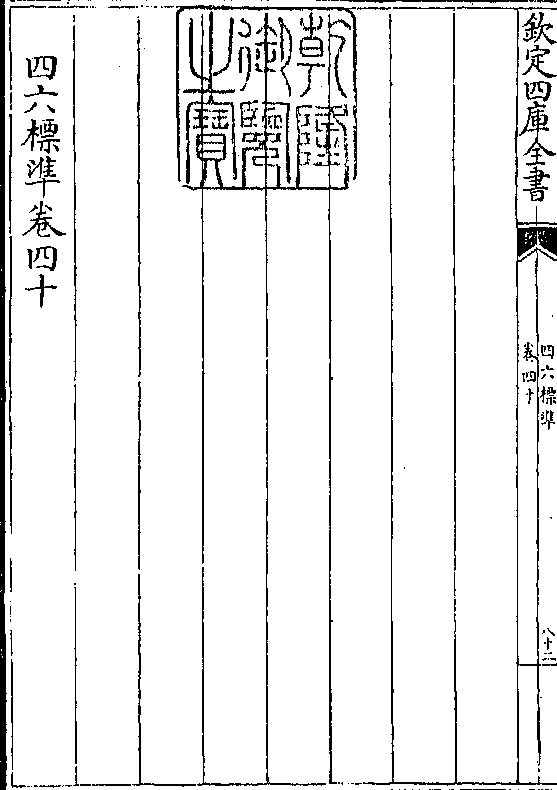 欽定四庫全書
四六標準
卷四十
八十二
乾隆
御覽
之寶
四六標準卷四十